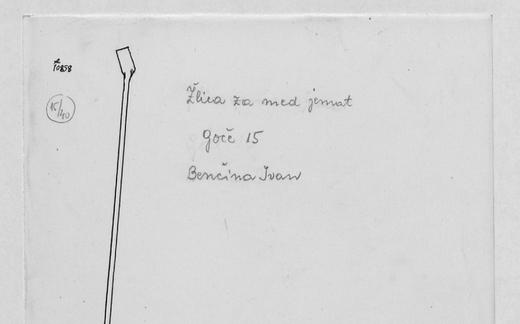 10858
15/40
Žlica za med jemat
Goče 15
Benčina Ivan